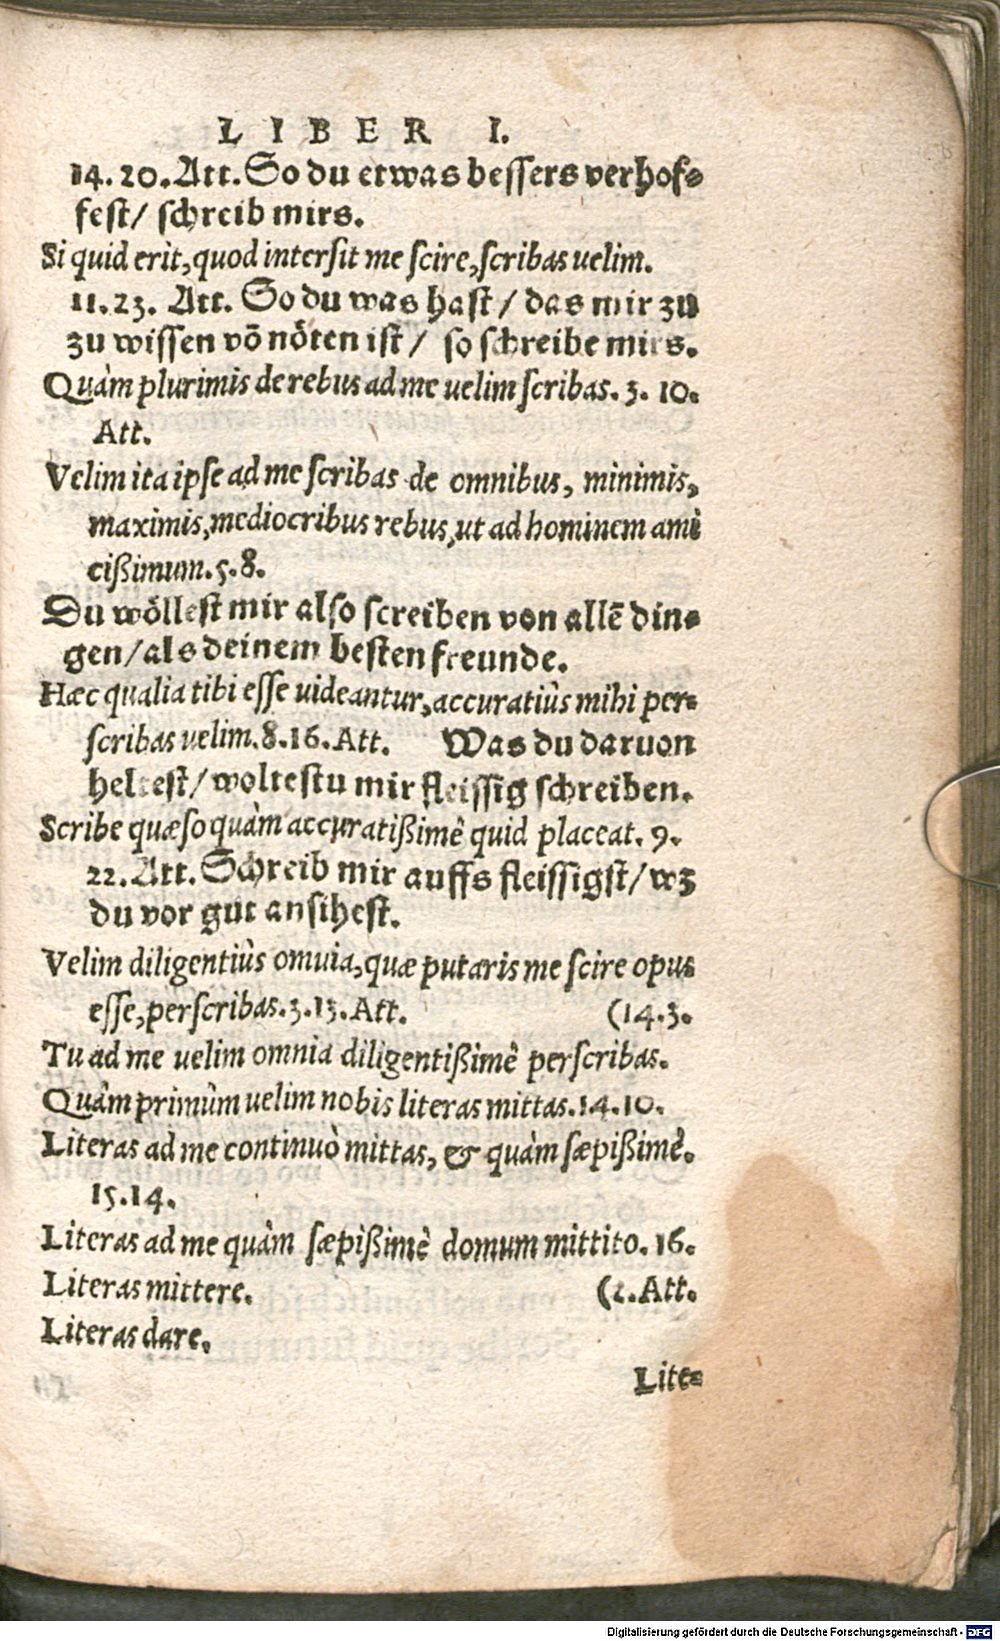 LIBER I.
14.20. Att. So du etwas bessers verhof⸗
fest/ schreib mirs.
Si quid erit, quod intersit me scire, scribas uelim.
11.23. Att. So du was hast / das mir zu
zu wissen võ nöten ist / so schreibe mirs.
Quàm plurimis de rebus ad me uelim scribas. 3. 10.
Att.
Velim ita ipse ad me scribas de omnibus, minimis,
maximis, mediocribus rebus, ut ad hominem ami
cißimum. 5. 8.
Du wöllest mir also screiben von allẽ din⸗
gen/ als deinem besten freunde.
Hæc qualia tibi esse uideantur, accuratiùs mihi per⸗
scribas uelim. 8. 16. Att. Was du daruon
heltest/ woltestu mir fleissig schreiben.
Scribe quæso quàm accuratißimè quid placeat. 9.
22. Att. Schreib mir auffs fleissigst/ wz
du vor gut ansihest.
Velim diligentiùs omuia, quæ putaris me scire opus
esse, perscribas. 3. 13. Att. (14.3.
Tu ad me uelim omnia diligentißimè perscribas.
Quàm primùm uelim nobis literas mittas. 14. 10.
Literas ad me continuò mittas, & quàm sæpißimè.
15. 14.
Literas ad me quàm sæpißimè domum mittito. 16.
Literas mittere. (2. Att.
Literas dare.
Lite⸗
Digitalisierung gefördert durch die Deutsche Forschungsgemeinschaft - DFG